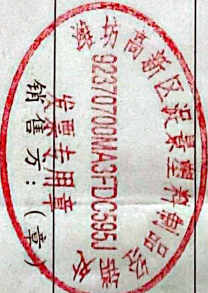 潍坊高新区淀景塑料制品经营处
92370700MA3FDC595J
发票专用章
销售方：（章）